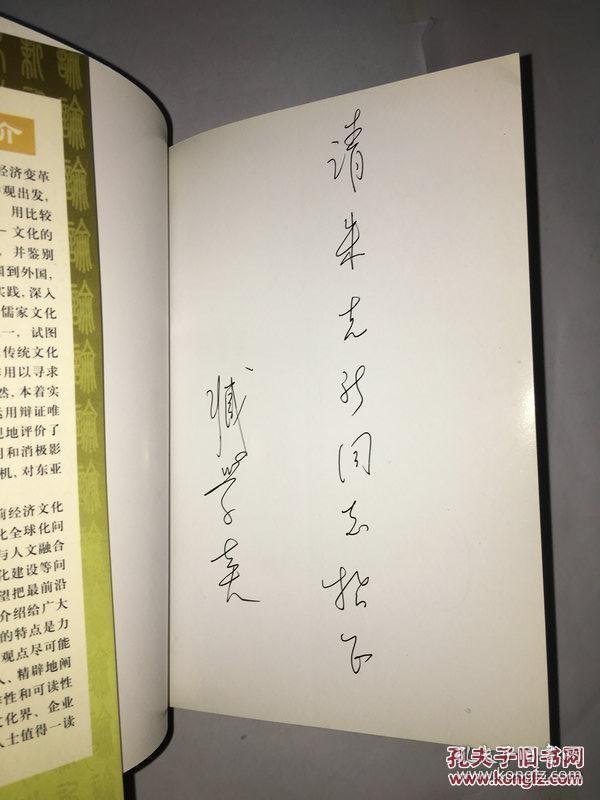 介
经济变革
观出发，
用比较
文化的
，并鉴别
国到外国，
实践，深入
儒家文化
一，试图
传统文化
用以寻求
然，本着实
运用辩证唯
观地评价了
用和消极影
机，对东亚
前经济文化
化全球化问
与人文融合
化建设等问
望把最前沿
介绍给广大
的特点是力
观点尽可能
人、精辟地阐
性和可读性
文化界、企业
人士值得一读
请朱同志指正
臧学英
孔夫子旧书网